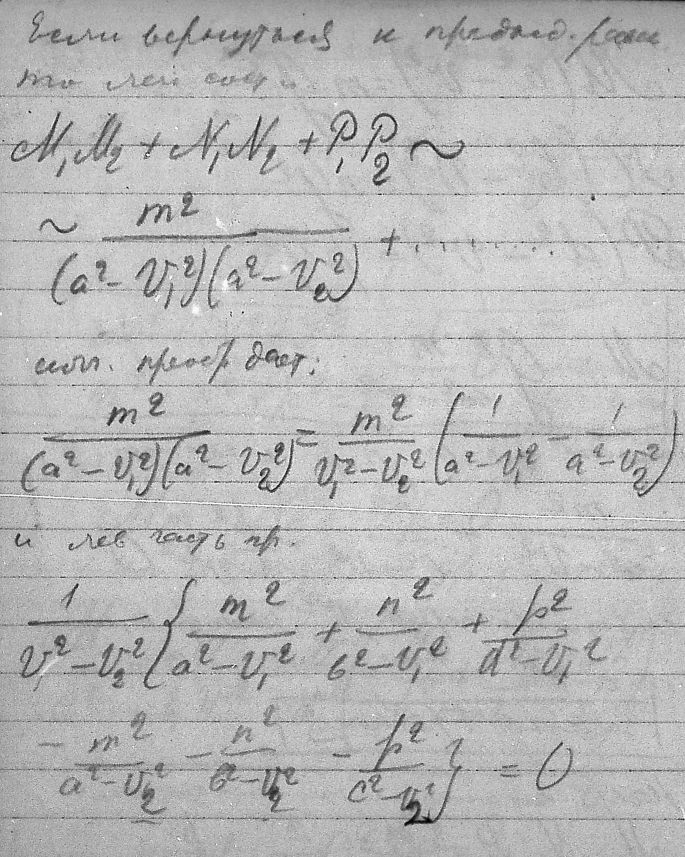 Если вернуться к предыд. рав
то лев сост.
M₁M₂ + N₁N₂ + P₁P₂ ~
~ m² / (a² − v₁²)(a² − v₂²) + ........
преобр дает:
m² / (a² − v₁²)(a² − v₂²) = m² / (v₁² − v₂²) (1 / (a² − v₁²) − 1 / (a² − v₂²))
и лев часть пр.
1 / (v₁² − v₂²) { m² / (a² − v₁²) + n² / (b² − v₁²) + p² / (c² − v₁²)
− m² / (a² − v₂²) − n² / (b² − v₂²) − p² / (c² − v₂²) } = 0